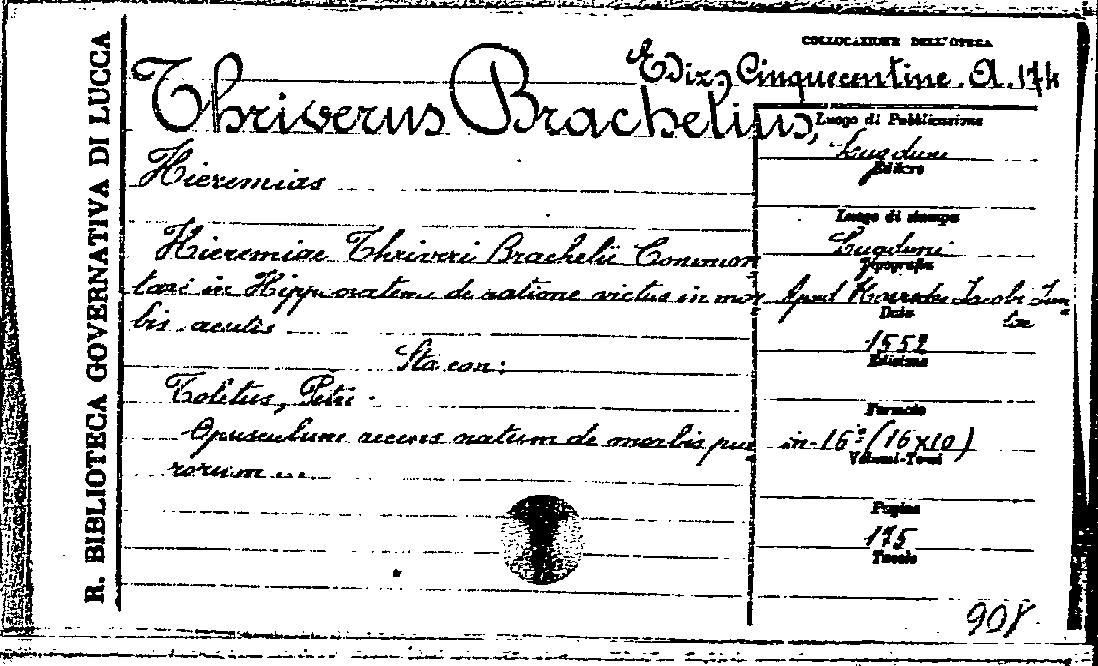 R. BIBLIOTECA GOVERNATIVA DI LUCCA
COLLOCAZIONE DELL'OPERA
Ediz. Cinquecentine. A. 174
Thriverus Brachelius,
Hieremias
Hieremiae Thriveri Brachelii Commen
tari in Hippocratem de ratione victus in mor
bis acutis
Sta con:
Toletus, Petri.
Opusculum recens natum de morbis pue
rorum ...
Luogo di Pubblicazione
Lugduni
Editore
Luogo di stampa
Lugduni
Tipografia
Apud Jacobi Jun
tae
Data
1552
Edizione
Formato
in-16° (16x10)
Volumi-Tomi
Pagine
175
Tavole
908